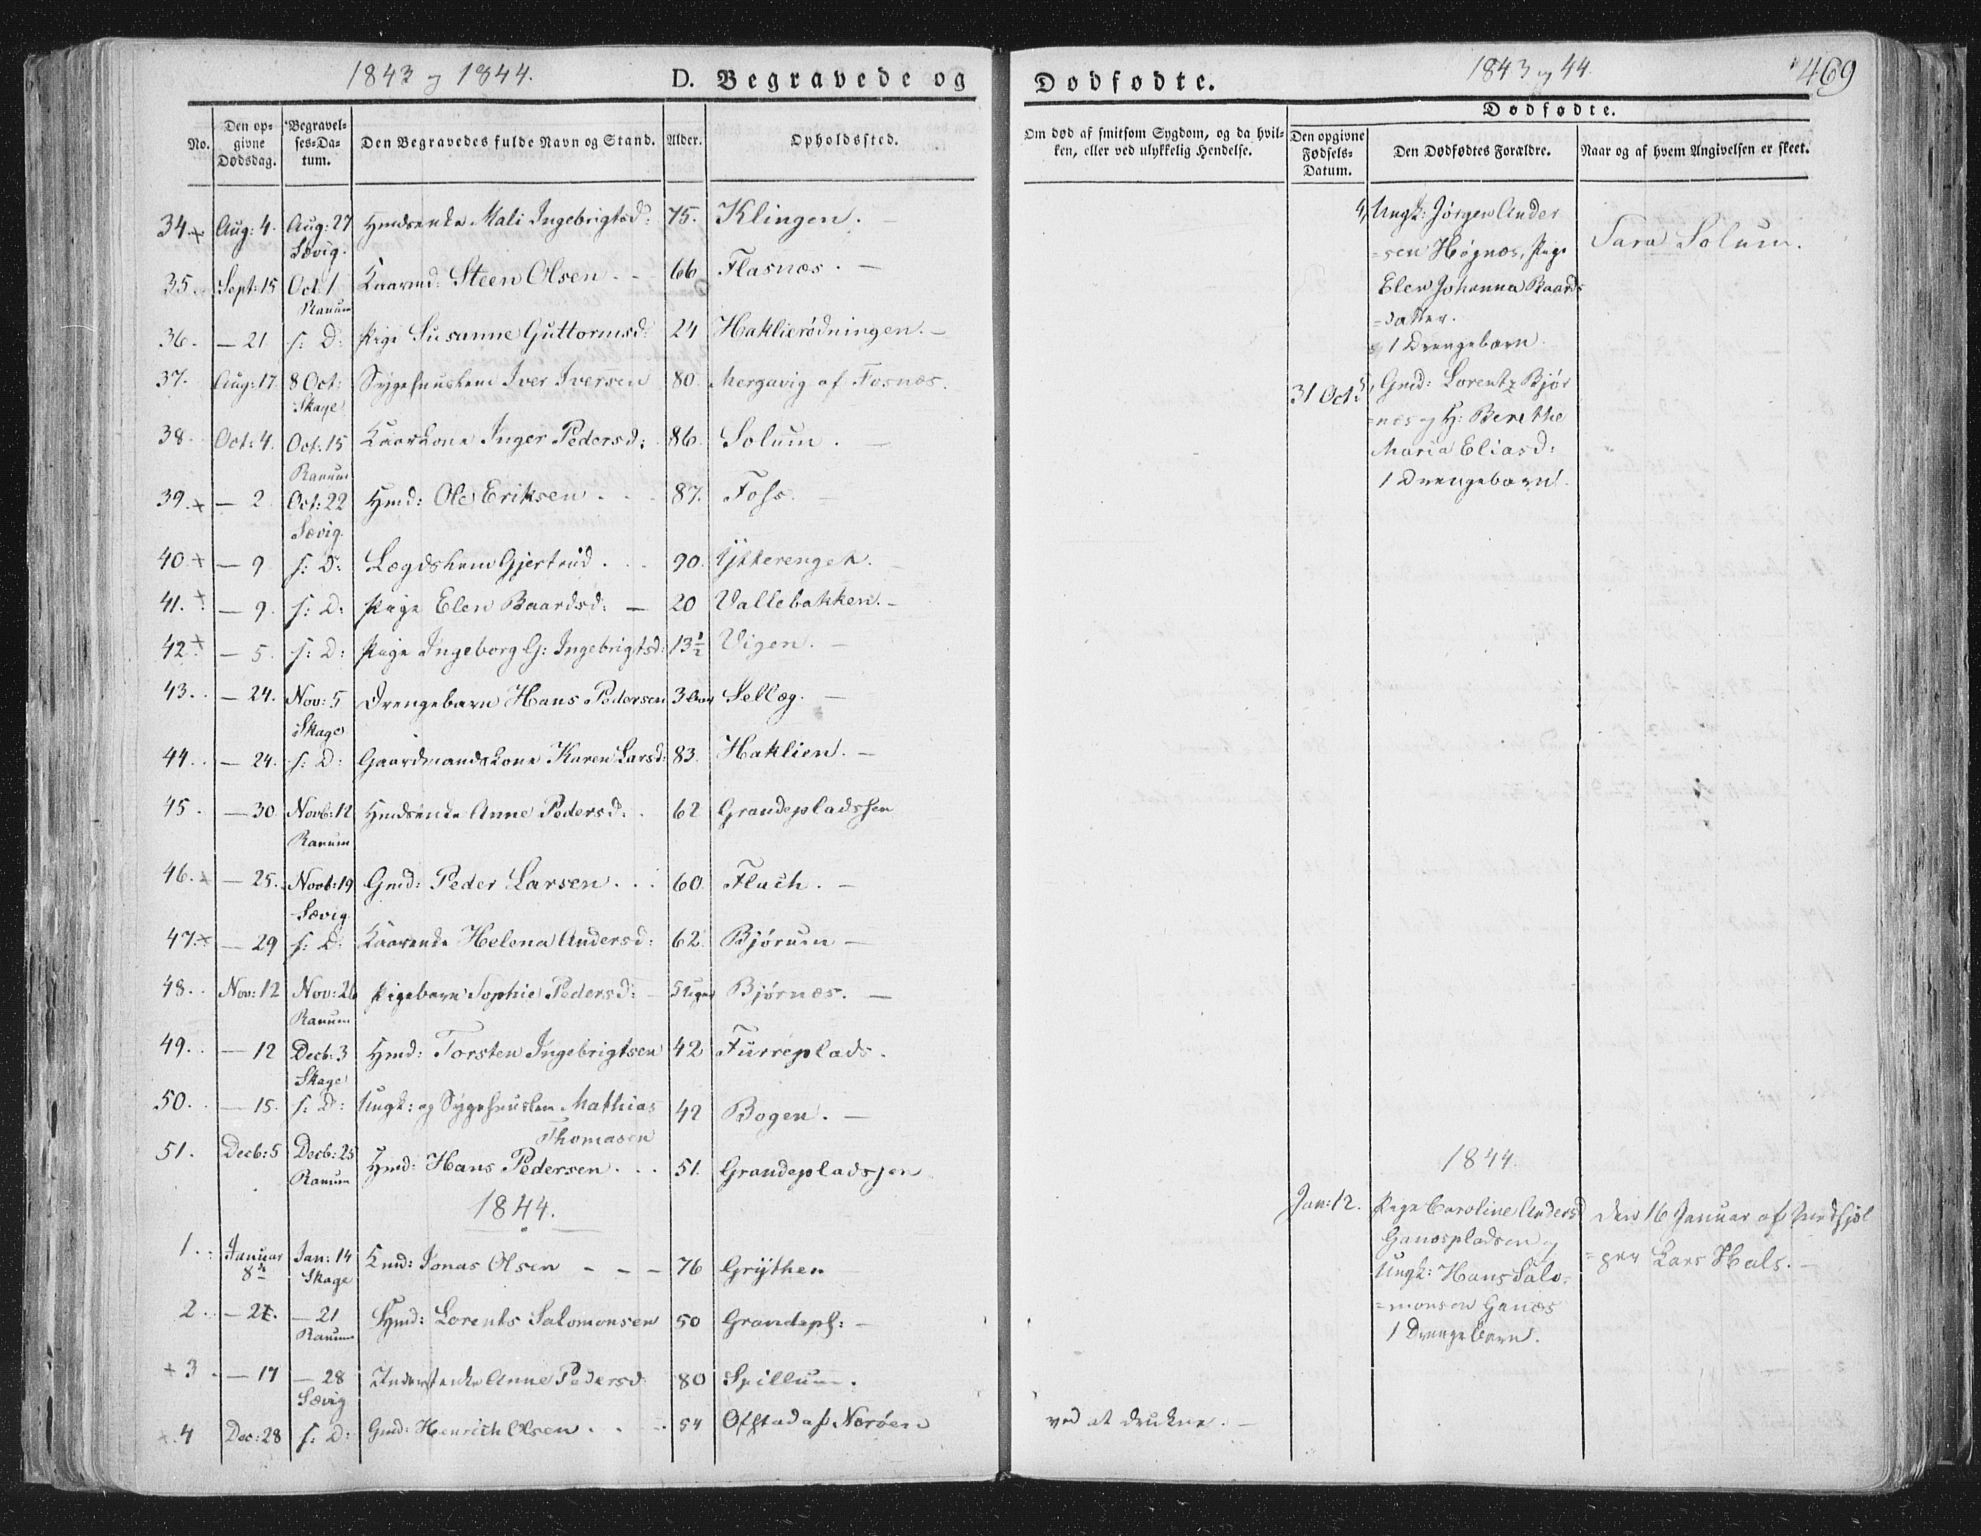 1843 og 1844.
D. Begravede og
No.
Den opgivne Dødsdag.
Begravelses-Datum.
Den Begravedes fulde Navn og Stand.
Alder.
Opholdssted.
34. Aug: 4. Aug: 27 Mali Ingebrigtsd: 75. Klingen.
Sævig.
35. Sept: 15 Oct: 1 Steen Olsen 66 Flasnæs.
Ranum
36. — 21 s: D: Pige Susanne Guttormsd: 24 Haklierødningen.
37. Aug: 17. 8 Oct: Iver Iversen 80. af Fosnæs.
Skage
38. Oct: 4. Oct: 15 Inger Pedersd: 86. Solum.
Ranum
39. — 2. Oct: 22 Hmd: Ole Eriksen 87. Foss.
Sævig.
40 — 9 s: D: Gjertrud 90. Ytterenget.
41. — 9. s: D: Pige Elen Baardsd: 20 Vallebakken.
42 — 5. s: D: Pige Ingeborg G: Ingebrigtsd: 13½ Vigen.
43. — 24. Nov: 5 Drengebarn Hans Pedersen Sellæg.
Skage
44. — 24. s: D: Gaardmandskone Karen Larsd: 83. Haklien.
45. — 30 Novb: 12 Anne Pedersd: 62 Grandepladssen
Ranum
46. — 25. Novb: 19 Gmd: Peder Larsen 60. Flach.
Sævig
47. — 29 s: D: Helena Andersd: 62. Bjørum
48. Nov: 12 Nov: 26 Pigebarn Sophie Pedersd: 5 Uger Bjørnæs.
Ranum
49. — 12 Decb: 3 Hmd: Torsten Ingebrigtsen 42 Furreplads.
Skage
50. — 15. s: D: Ungk: og Mathias 42 Bogen.
Thomasen
51. Decb: 5 Decb: 25 Hmd: Hans Pedersen 51. Grandepladsen
Ranum
1844.
1. Januar 8de Jan: 14 Jonas Olsen 76 Grythen
Skage
2. — 21 Hmd: Lorents Salomonsen 50 Grandepl:
Ranum
3. — 17 — 28 Anne Pedersd: 80 Spillum.
Sævig
4 Dec: 28 s: D: Gmd: Henrich Olsen 54 Ofstad af Nærøen
Dødfødte.
1843 og 44.
469
Dødfødte.
Om død af smitsom Sygdom, og da hvilken, eller ved ulykkelig Hendelse.
Den opgivne Fødsels-Datum.
Den Dødfødtes Forældre.
Naar og af hvem Angivelsen er skeet.
4, Ungk: Jørgen Ander
=sen Høgnæs, Pige Sara Solum.
Elen Johanna Baards
=datter.
1 Drengebarn
31 Oct: 5, Gmd: Lorentz Bjør
=næs og H: Berethe
Maria Eliasd:
1 Drengebarn.
1844.
Jan: 12. Pige Caroline Andersd den 16 Januar af
Ganæspladsen og Lars Hals.
Ungk: Hans Salo-
=monsen Ganæs
1 Drengebarn.
ved at drukne.